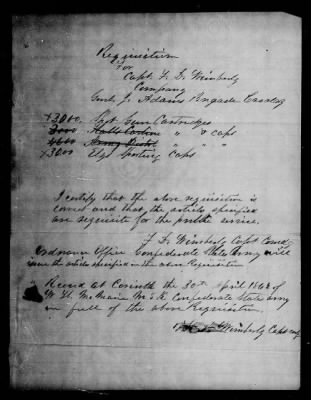 Requisition
For
Capt. F. D. Wimberly
Company
Genl. J. Adams Brigade Cavalry
x3000. Gun Cartridges
3000 " & caps
4000 Army Pistol " "
x3000 Sporting Caps
I certify that the above requisition is
correct and that the articles specified
are requisite for the public service.
F. D. Wimberly Capt Comd
Ordnance Officer Confederate State Army will
issue the articles specified in the above Requisition
Recvd at Corinth the 30th April 1862 of
W. H. McMain M.S.K. Confederate State Army
in full of the above Requisition.
Wimberly Capt comdg